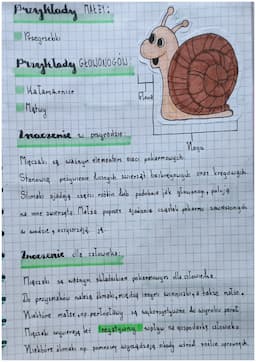 Przykłady MAŁŻY:
Przegrzebki
Przykłady GŁOWONOGÓW
Kałamarnice
Mątwy
Noga
Znaczenie w przyrodzie:
Mięczaki są ważnym elementem sieci pokarmowych.
Stanowią pożywienie licznych zwierząt bezkręgowych oraz kręgowych.
Ślimaki zjadają części roślin lub podobnie jak głowonogi, polują
na inne zwierzęta. Małże poprzez zjadanie cząstek pokarmu zawieszonych
w wodzie, oczyszczają ją.
Znaczenie dla człowieka:
Mięczaki są ważnym składnikiem pokarmowym dla człowieka.
Do przysmaków należą ślimaki, między innymi winniczki, a także małże.
Niektóre małże, np. perłopławy są wykorzystywane do wyrobu pereł.
Mięczaki wywierają też negatywny wpływ na gospodarkę człowieka.
Niektóre ślimaki np. pomrowy wyrządzają szkody wśród roślin uprawnych.